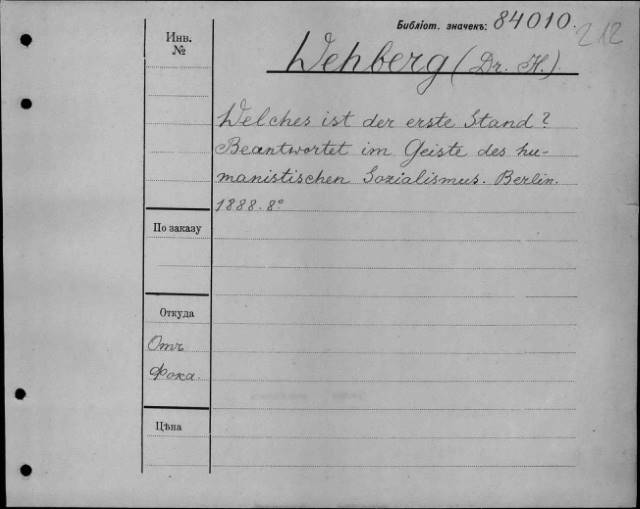 Библіот. значекъ: 84010.
212
Инв.
№
Wehberg (Dr. H.)
Welches ist der erste Stand?
Beantwortet im Geiste des hu-
manistischen Sozialismus. Berlin.
1888. 8°
По заказу
Откуда
Отъ
Фока.
Цѣна